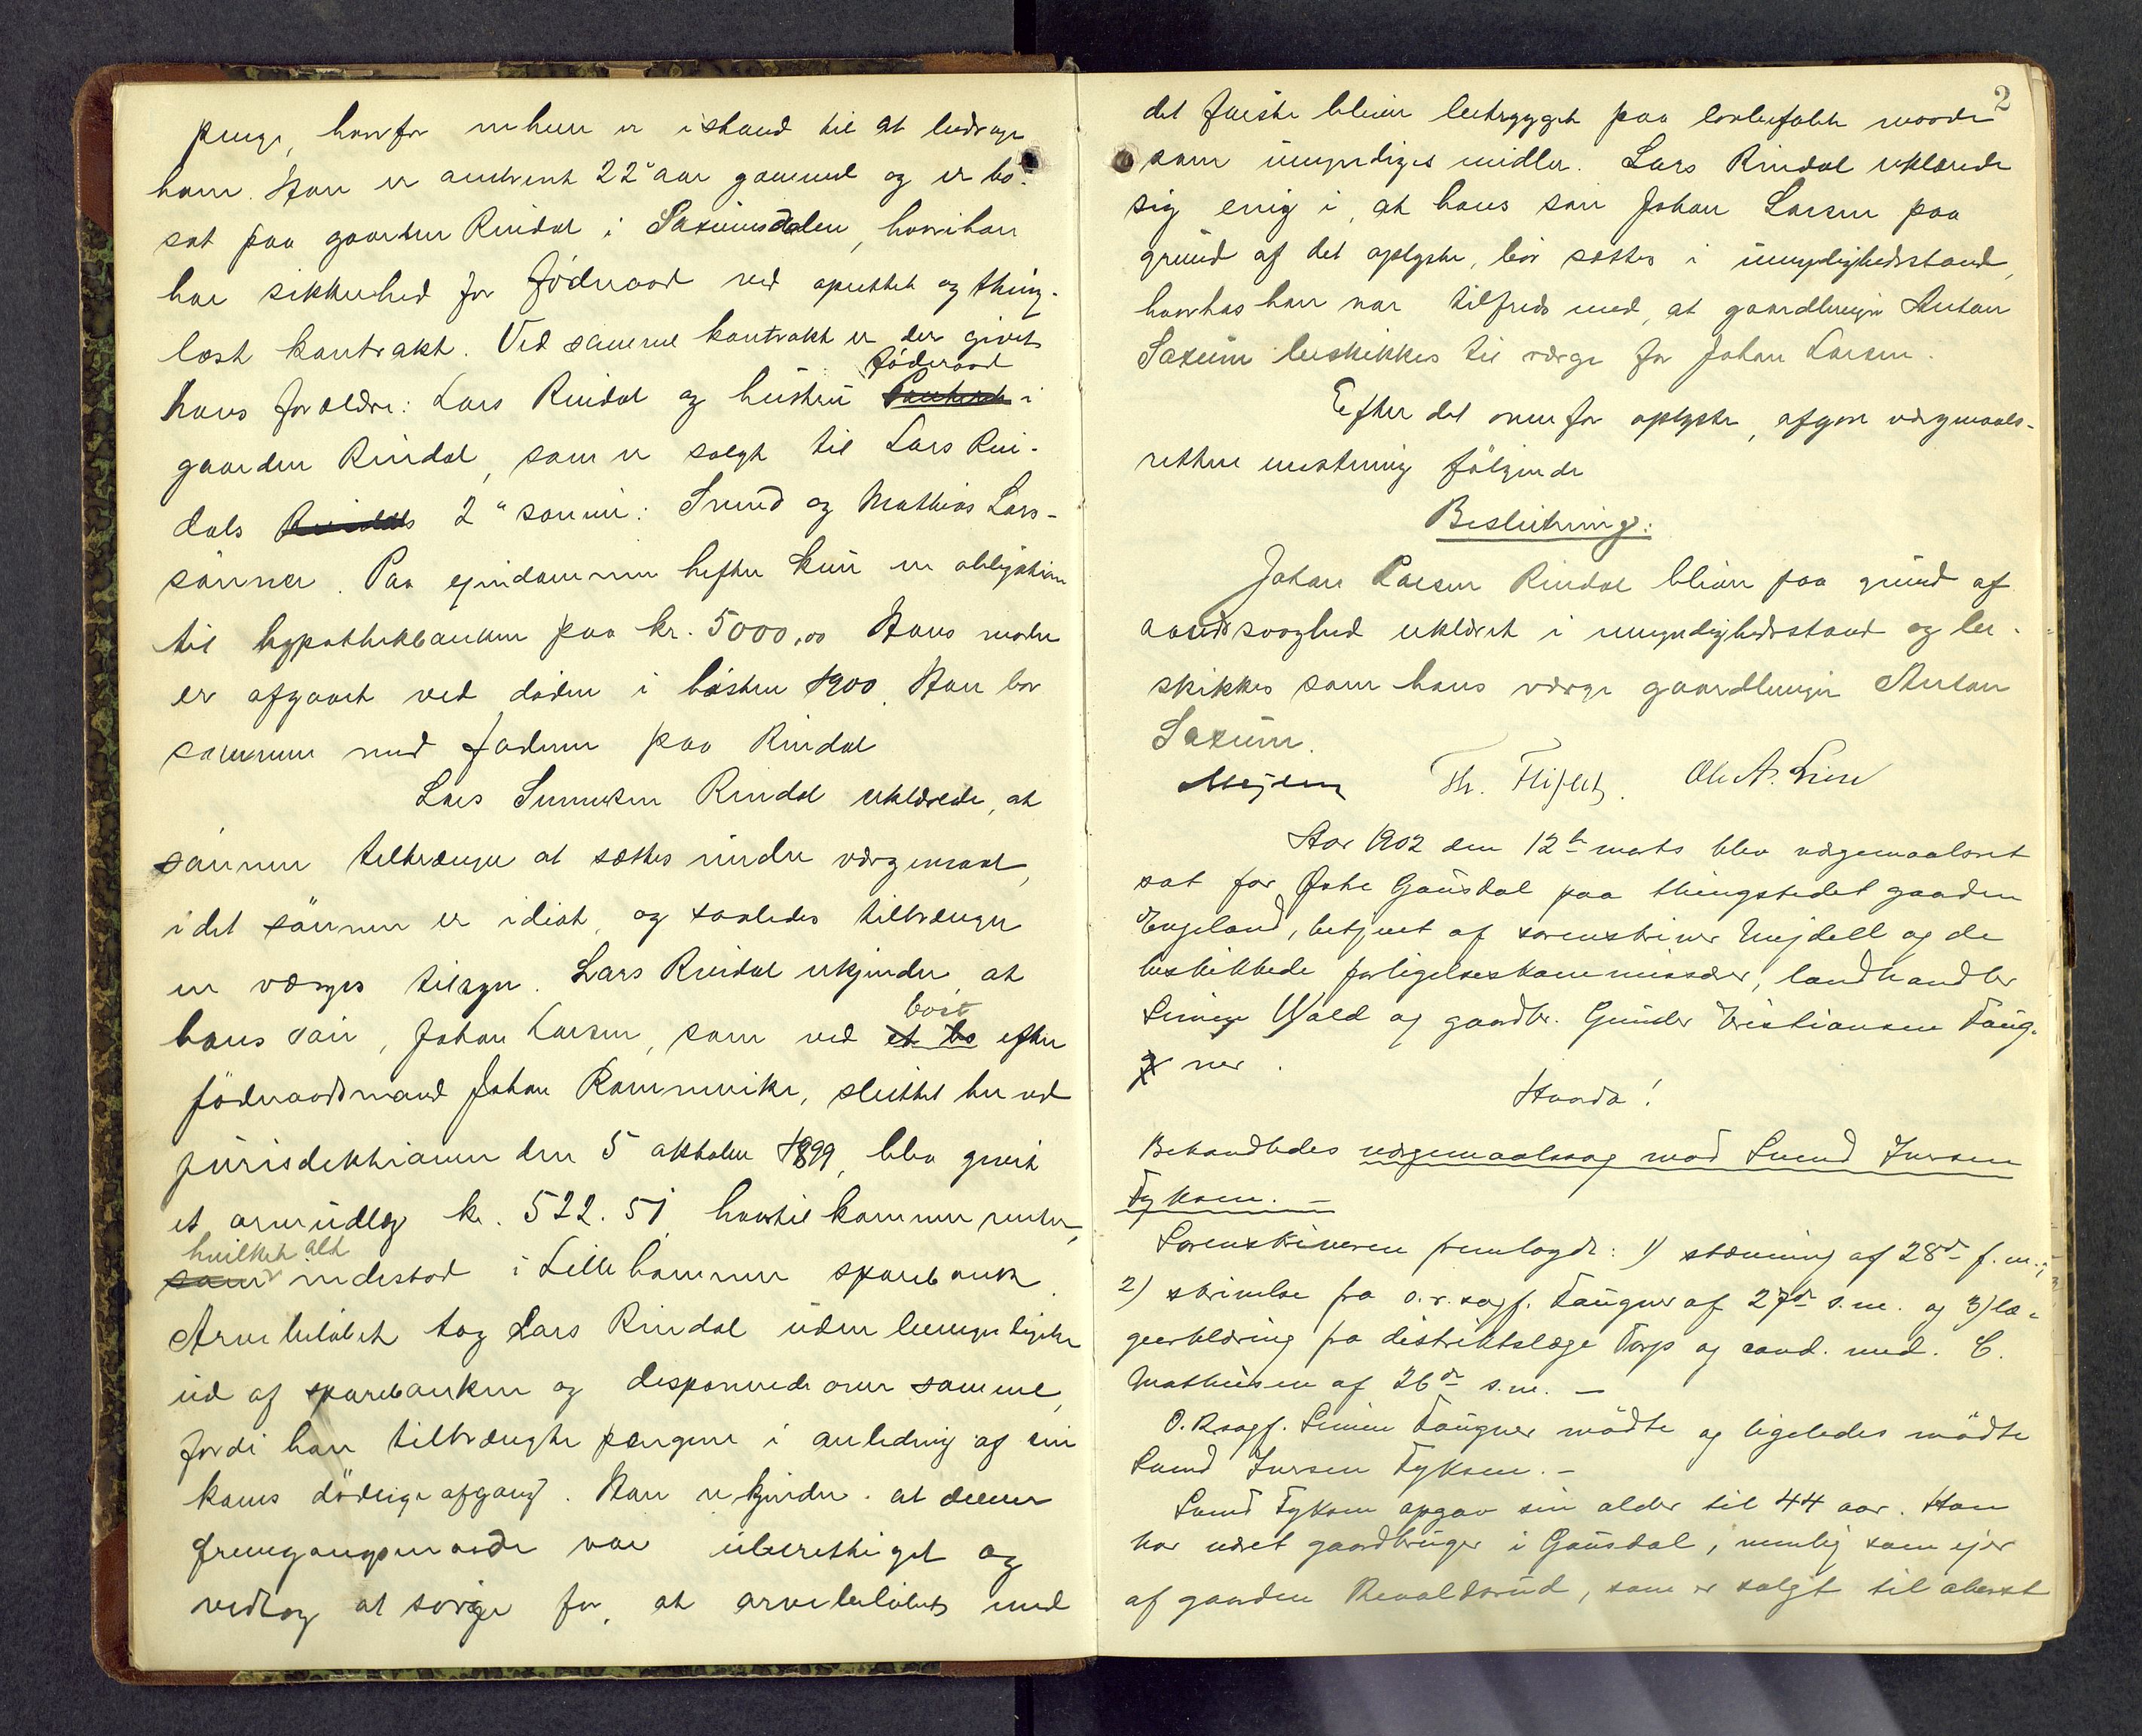 penge, hvorfor enhver er istand til at bedrage
ham. Han er omtrent 22 aar gammel og er bo-
sat paa gaarden Rindal i Saxumsdalen, hvori han
har sikkerhed for föderaad ved oprettet og thing-
læst kontrakt. Ved samme kontrakt er der givet
föderaad
hans forældre: Lars Rindal og hustru i
gaarden Rindal, som er solgt til Lars Rin-
dals Rindals 2 sönner: Svend og Mathias Lars-
sönner. Paa eiendommen hefter kun en obligation
til hypothekbanken paa kr. 5000,00 Hans moder
er afgaaet ved döden i hösten 1900. Han bor
sammen med faderen paa Rindal
Lars Simensen Rindal erklærede, at
sönnen tiltrænger at sættes under værgemaal,
idet sönnen er idiot, og saaledes tiltrænger
en værges tilsyn. Lars Rindal erkjender, at
boet
hans sön, Johan Larsen, som ved et bo efter
föderaadsmand Johan Rammerike, sluttet her ved
jurisdiktionen den 5 oktober 1899, blev givet
et arveudlæg kr. 522.51 hvortil kommer renter,
hvilket alt
som indestod i Lillehammer sparebank.
Arvebelöbet tog Lars Rindal uden bemyndigelse
ud af sparebanken og disponerede over samme,
fordi han tiltrængte pengene i anledning af sin
kones dödelige afgang. Han erkjender at denne
fremgangsmaade var uberettiget og
vedtog at sörge for, at arvebelöbet med
2
det förste bliver betrygget paa lovbefalet maade
som umyndiges midler. Lars Rindal erklærede
sig enig i, at hans sön Johan Larsen paa
grund af det oplyste, bör sættes i umyndighedsstand,
hvorhos han var tilfreds med, at gaardbruger Anton
Saxum beskikkes til værge for Johan Larsen.
Efter det ovenfor oplyste, afgav værgemaals-
retten enstemmig fölgende
Beslutning:
Johan Larsen Rindal bliver paa grund af
aandssvaghed erklæret i umyndighedsstand og be-
skikkes som hans værge gaardbruger Anton
Saxum.
Mejdell Th. Fliflet. Ole A. Lien
Aar 1902 den 12te marts blev værgemaalsret
sat for Östre Gausdal paa thingstedet gaarden
Engeland, betjent af sorenskriver Mejdell og de
beskikkede forligelseskommissærer, landhandler
Simen Wold og gaardbr. Gunder Kristiansen Taug-
ner.
Hvorda!
Behandledes værgemaalssag mod Svend Iversen
Fyksen. –
Sorenskriveren fremlagde: 1) stævning af 28de f.m.;
2) skrivelse fra o.r.sagf. Taugner af 27de s.m. og 3) læ-
geerklæring fra distriktslæge Torp og cand. med. C.
Mathiesen af 26de s.m. –
O.R.sagf. Simen Taugner mödte og ligeledes mödte
Svend Iversen Fyksen. –
Svend Fyksen opgav sin alder til 44 aar. Han
har været gaardbruger i Gausdal, nemlig som ejer
af gaarden Revaldsrud, som er solgt til oberst